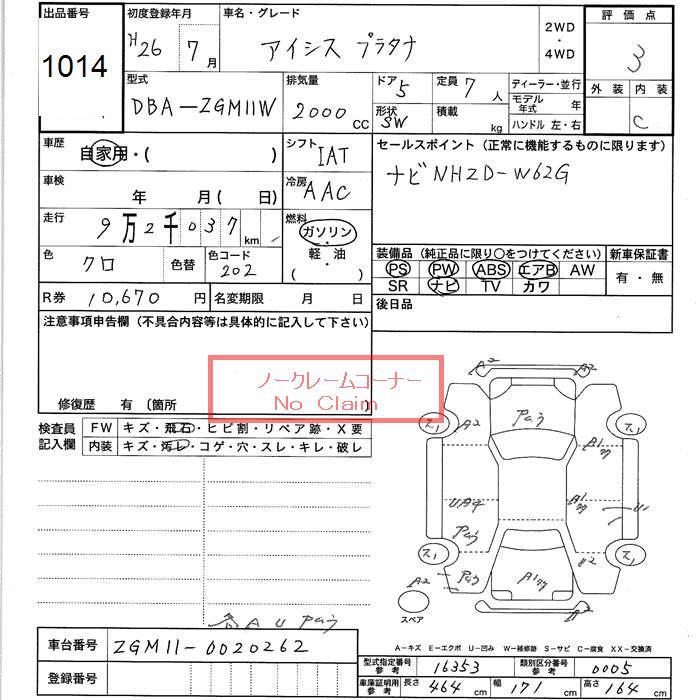 出品番号
1014
初度登録年月
H26 7月
車名・グレード
アイシス プラタナ
2WD
・
4WD
評価点
3
外装 内装
C
型式
DBA-ZGM11W
排気量
2000 cc
ドア 5
形状 SW
定員 7 人
積載 kg
ディーラー・並行
モデル年式 年
ハンドル 左・右
車歴 自家用・( )
シフト IAT
冷房 AAC
車検 年 月( 日)
走行 9万2千037km
燃料 ガソリン
・
軽油
( )
色 クロ 色替 色コード 202
R券 10,670 円 名変期限 月 日
セールスポイント(正常に機能するものに限ります)
ナビNHZD-W62G
装備品(純正品に限り○をつけてください)
PS PW ABS エアB AW
SR ナビ TV カワ
新車保証書
有・無
後日品
注意事項申告欄(不具合内容等は具体的に記入して下さい)
ノークレームコーナー
No Claim
修復歴 有 〔箇所
検査員記入欄
FW キズ・飛石・ヒビ割・リペア跡・X要
内装 キズ・汚レ・コゲ・穴・スレ・キレ・破レ
各AU Pあう
A2 A2
ス1 A2 Pあう ス1
A1
UA4 A1 U1
Pあう
ス1 U2 ス1
A2 Pあう A1
スペア A2
車台番号 ZGM11-0020262
登録番号
A-キズ E-エクボ U-凹み W-補修跡 S-サビ C-腐食 XX-交換済
型式指定番号参考 16353 類別区分番号参考 0005
車庫証明用参考 長さ 464 cm 幅 171 cm 高さ 164 cm